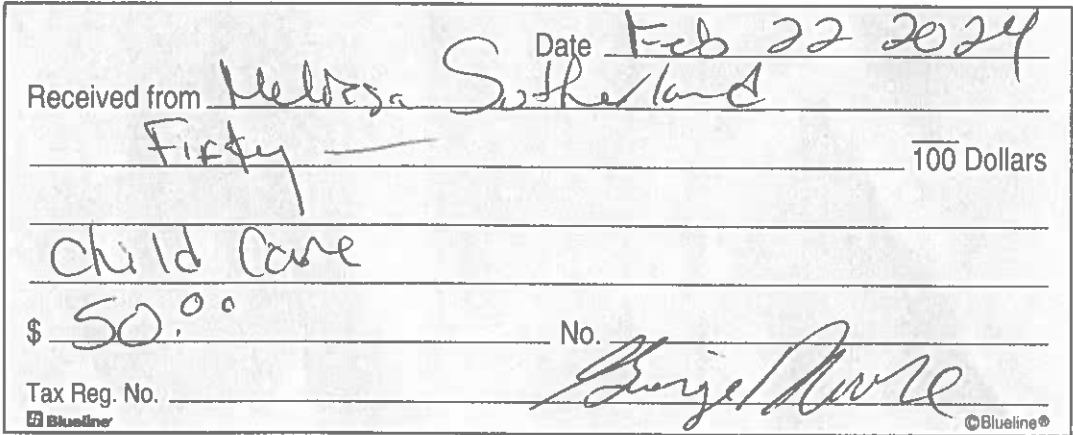 Date Feb 22 2024
Received from Melissa Sutherland
Fifty — 100 Dollars
Child Care
$ 50.00 No.
Tax Reg. No. George Moore
Blueline ©Blueline®